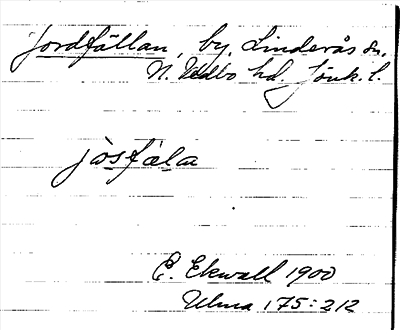 Jordfällan, by, Linderås sn.
N. Vedbo hd. Jönk. l.
jo̱sfæla
E. Ekwall 1900
Ulma 175:212